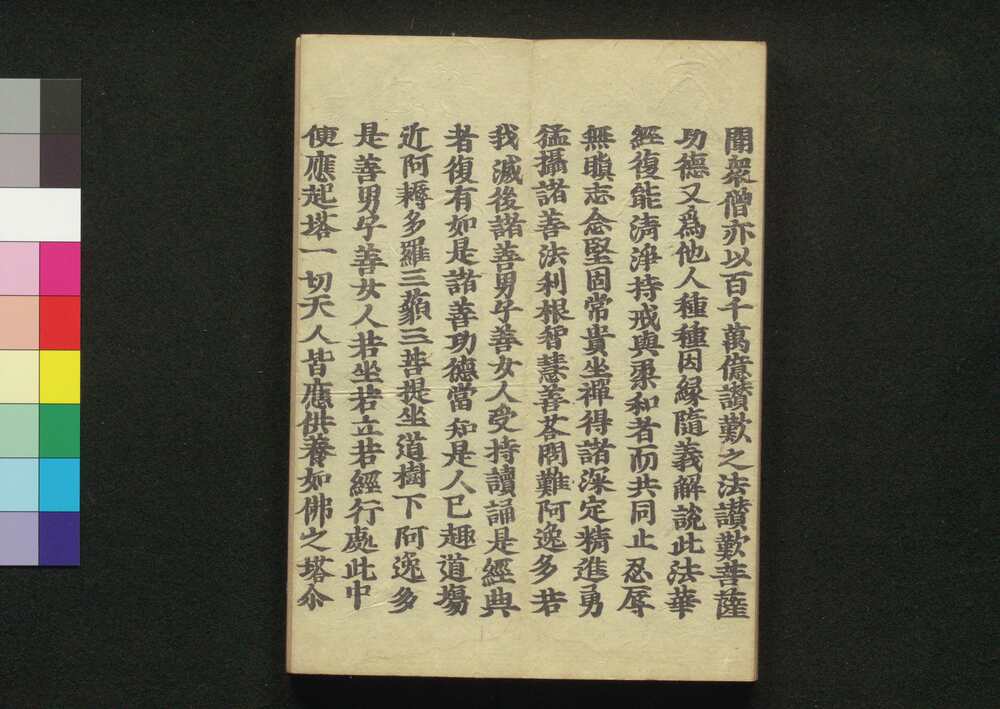 聞衆僧亦以百千萬億讃歎之法讃歎菩薩
功德又爲他人種種因縁隨義解說此法華
經復能清淨持戒與柔和者而共同止忍辱
無瞋志念堅固常貴坐禪得諸深定精進勇
猛攝諸善法利根智慧善荅問難阿逸多若
我滅後諸善男子善女人受持讀誦是經典
者復有如是諸善功德當知是人已趣道場
近阿耨多羅三藐三菩提坐道樹下阿逸多
是善男子善女人若坐若立若經行處此中
便應起塔一切天人皆應供養如佛之塔尒